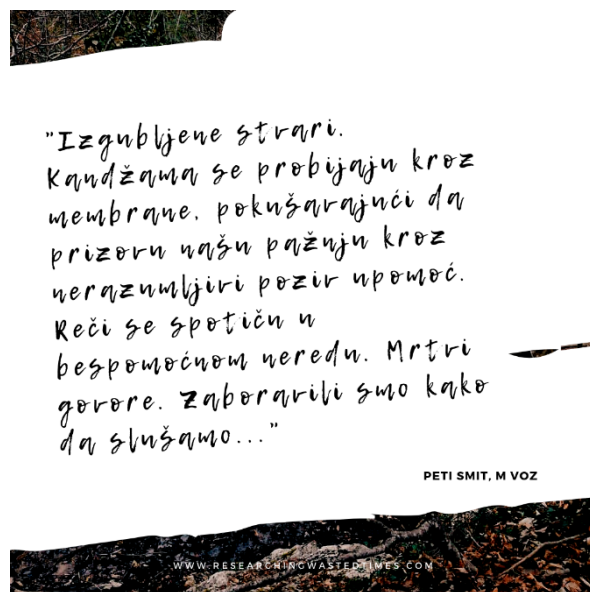 "Izgubljene stvari.
Kandžama se probijaju kroz
membrane, pokušavajući da
prizovu našu pažnju kroz
nerazumljivi poziv upomoć.
Reči se spotiču u
bespomoćnom neredu. Mrtvi
govore. Zaboravili smo kako
da slušamo..."
PETI SMIT, M VOZ
WWW.RESEARCHINGWASTEDTIMES.COM